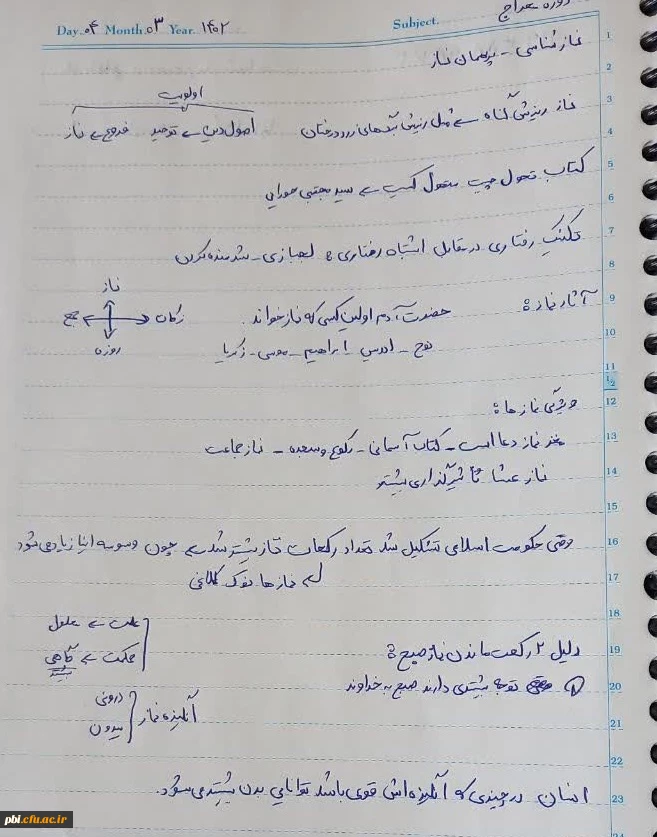 دوره معراج
Day. ۰۴ Month. ۰۳ Year. ۱۴۰۲ Subject.
نماز شناسی - پیمان نماز
اولویت
نماز ریزش گناه مثل ریزش برگ‌های زرد درختان
اصول دین ← توحید فروع ← نماز
کتاب تحول چیست متحول کیست ← سید مجتبی حورایی
تکنیک رفتاری در مقابل اشتباه رفتاری و لجبازی - شرمنده کردن
آثار نماز: حضرت آدم اولین کسی که نماز خواند.
نوح - ادریس - ابراهیم - موسی - زکریا
نماز
حج زکات
روزه
ویژگی نمازها:
مغز نماز دعا است - کتاب آسمانی - رکوع و سجده - نماز جماعت
نماز عشا تأثیرگذاری بیشتر
وقتی حکومت اسلامی تشکیل شد تعداد رکعات نماز بیشتر شد ← چون وسوسه زیاد می‌شود
نمازها نوک کلاغی
علت ← معلول
دلیل ۲ رکعت ماندن نماز صبح:
حکمت ← آگاهی بیشتر
① توجه بیشتری دارند صبح به خداوند
انگیزه نماز
درونی
بیرون
انسان در چیزی که انگیزه‌اش قوی باشد توانایی بدن بیشتر می‌شود.
1
2
3
4
5
6
7
8
9
10
11
12
13
14
15
16
17
18
19
20
21
22
23
pbi.cfu.ac.ir